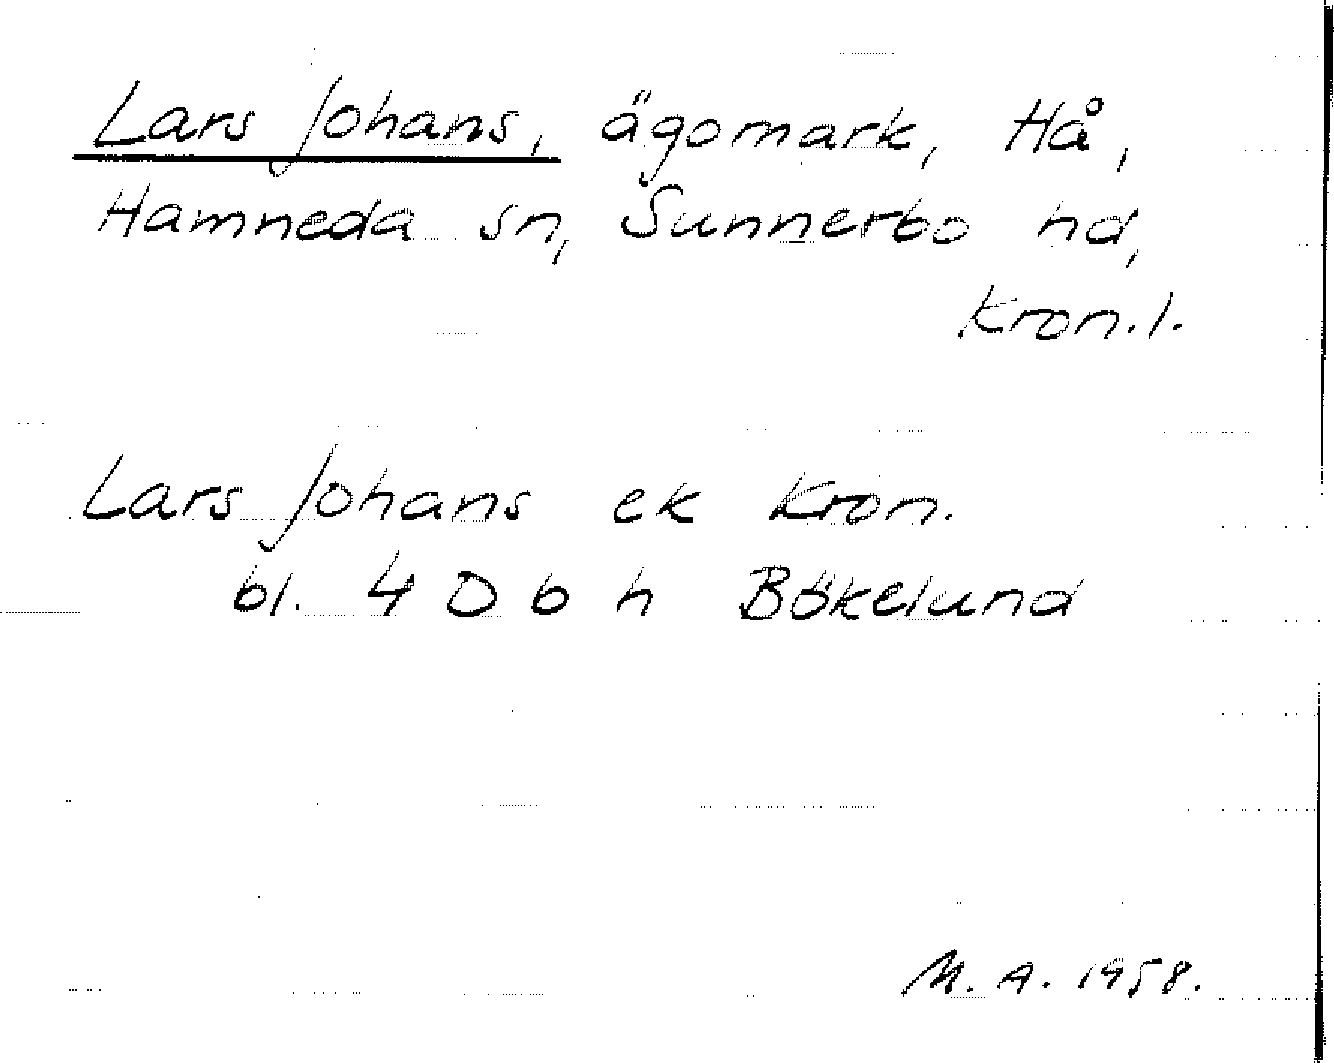 Lars Johans, ägomark, Hå,
Hamneda sn, Sunnerbo hd,
Kron.l.
Lars Johans ek Kron.
bl. 4 D b h Bökelund
M. A. 1958.